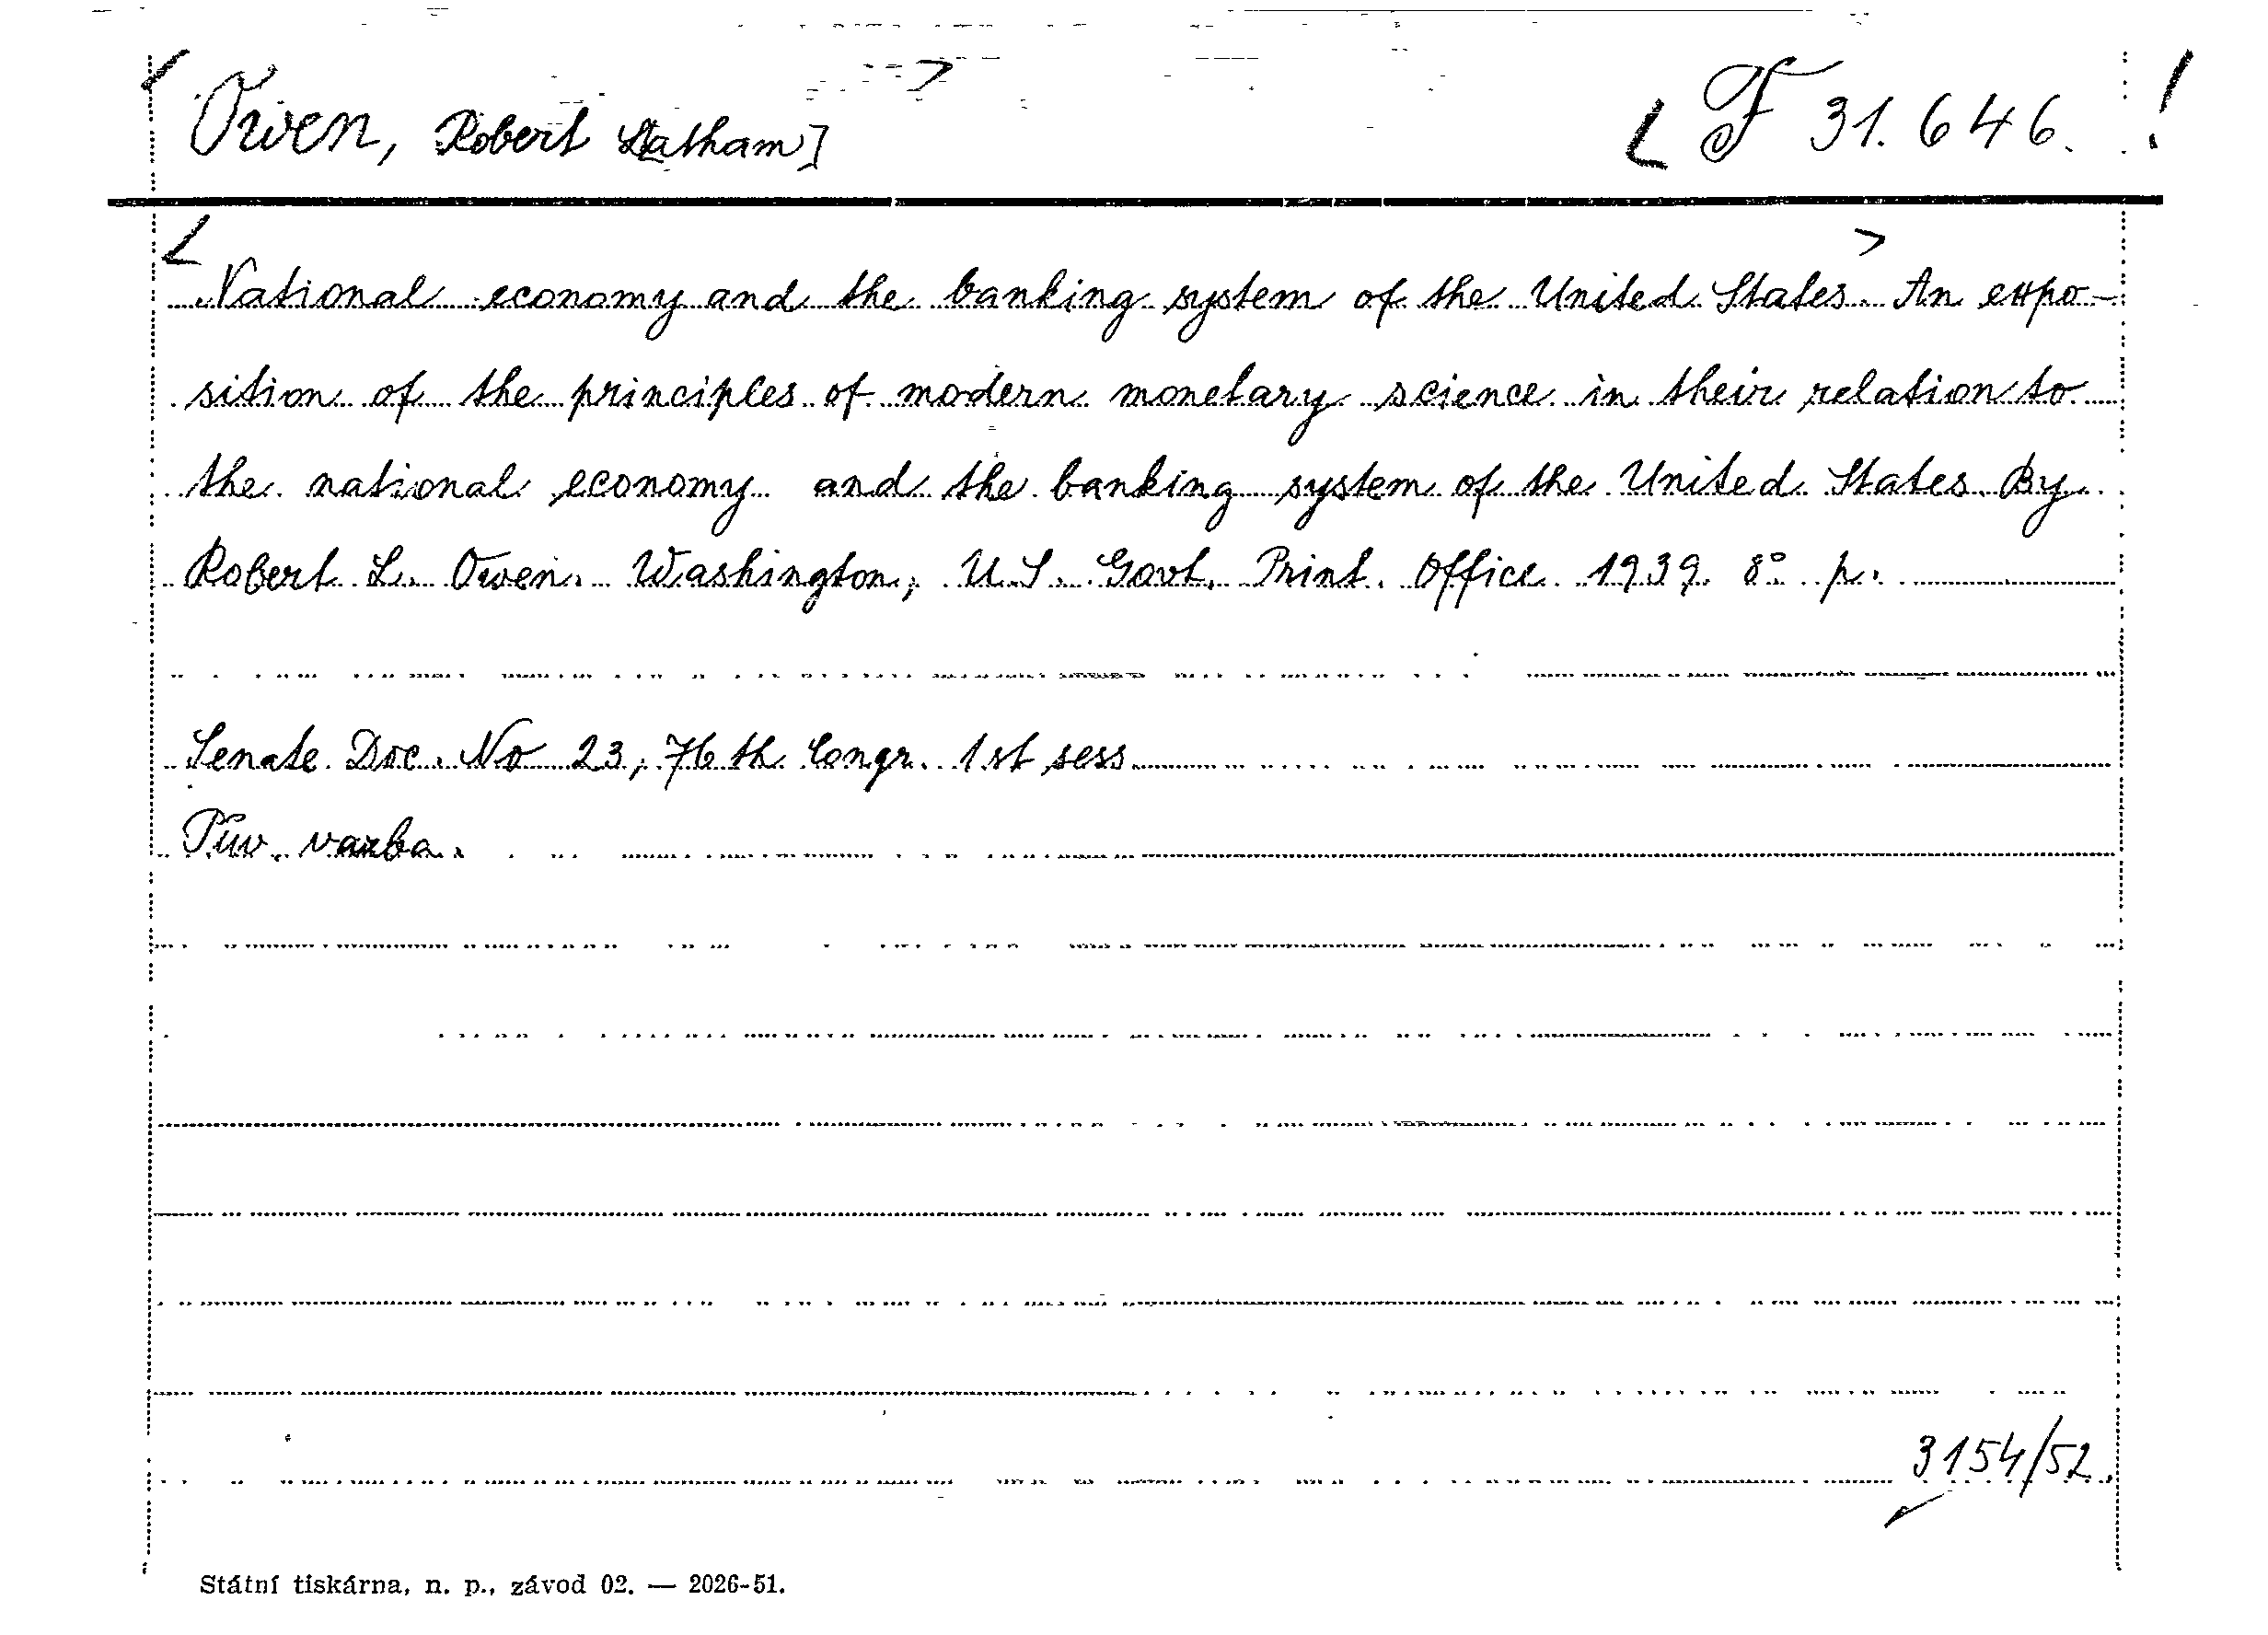 Owen, Robert Latham]
F 31.646.
National economy and the banking system of the United States. An expo-
sition of the principles of modern monetary science in their relation to
the national economy and the banking system of the United States. By
Robert L. Owen. Washington, U.S. Govt. Print. Office 1939. 8° p.
Senate Doc. No 23, 76th Congr. 1st sess.
Pův. vazba.
3154/52.
Státní tiskárna, n. p., závod 02. — 2026-51.